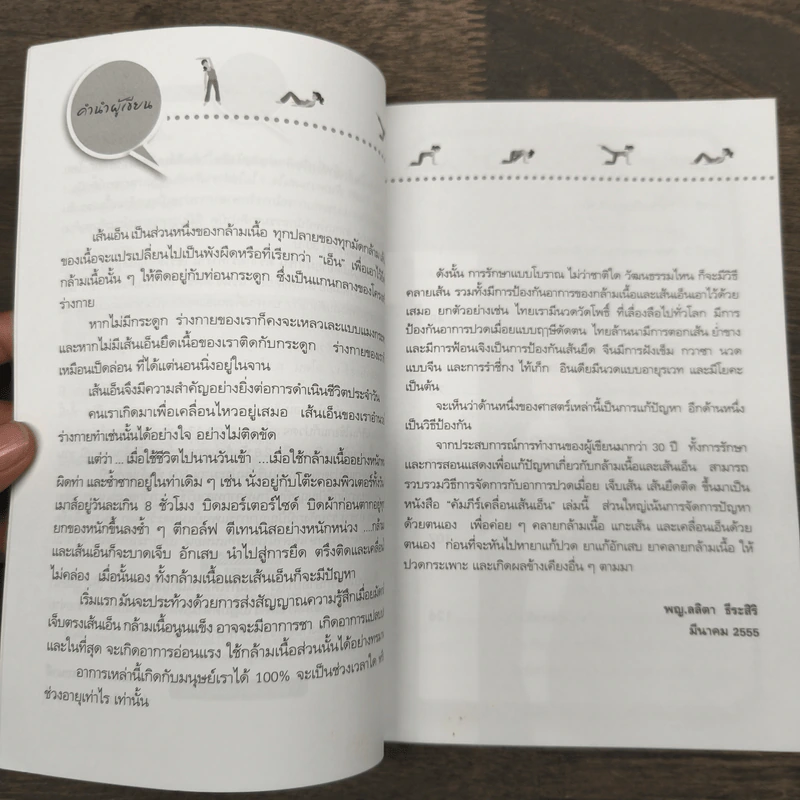 คำนำผู้เขียน
เส้นเอ็น เป็นส่วนหนึ่งของกล้ามเนื้อ ทุกปลายของทุกมัดกล้าม
ของเนื้อจะแปรเปลี่ยนไปเป็นพังผืดหรือที่เรียกว่า "เอ็น" เพื่อเอาไว้
กล้ามเนื้อนั้น ๆ ให้ติดอยู่กับท่อนกระดูก ซึ่งเป็นแกนกลางของ
ร่างกาย
หากไม่มีกระดูก ร่างกายของเราก็คงจะเหลวเละแบบแมงกะ
และหากไม่มีเส้นเอ็นยึดเนื้อของเราติดกับกระดูก ร่างกายของเรา
เหมือนเป็ดล่อน ที่ได้แต่นอนนิ่งอยู่ในจาน
เส้นเอ็นจึงมีความสำคัญอย่างยิ่งต่อการดำเนินชีวิตประจำวัน
คนเราเกิดมาเพื่อเคลื่อนไหวอยู่เสมอ เส้นเอ็นของเรา
ร่างกายทำเช่นนั้นได้อย่างใจ อย่างไม่ติดขัด
แต่ว่า ... เมื่อใช้ชีวิตไปนานวันเข้า ...เมื่อใช้กล้ามเนื้ออย่างหนัก
ผิดท่า และซ้ำซากอยู่ในท่าเดิม ๆ เช่น นั่งอยู่กับโต๊ะคอมพิวเตอร์
เมาส์อยู่วันละเกิน 8 ชั่วโมง บิดมอร์เตอร์ไซด์ บิดผ้าก่อนตากอยู่
ยกของหนักขึ้นลงซ้ำ ๆ ตีกอล์ฟ ตีเทนนิสอย่างหนักหน่วง ....กล้าม
และเส้นเอ็นก็จะบาดเจ็บ อักเสบ นำไปสู่การยืด ตรึงติดและเคลื่อน
ไม่คล่อง เมื่อนั้นเอง ทั้งกล้ามเนื้อและเส้นเอ็นก็จะมีปัญหา
เริ่มแรกมันจะประท้วงด้วยการส่งสัญญาณความรู้สึกเมื่อย
เจ็บตรงเส้นเอ็น กล้ามเนื้อนูนแข็ง อาจจะมีอาการชา เกิดอาการ
และในที่สุด จะเกิดอาการอ่อนแรง ใช้กล้ามเนื้อส่วนนั้นได้อย่าง
อาการเหล่านี้เกิดกับมนุษย์เราได้ 100% จะเป็นช่วงเวลาใด
ช่วงอายุเท่าไร เท่านั้น
ดังนั้น การรักษาแบบโบราณ ไม่ว่าชาติใด วัฒนธรรมไหน ก็จะมีวิธี
คลายเส้น รวมทั้งมีการป้องกันอาการของกล้ามเนื้อและเส้นเอ็นเอาไว้ด้วย
เสมอ ยกตัวอย่างเช่น ไทยเรามีนวดวัดโพธิ์ ที่เลื่องลือไปทั่วโลก มีการ
ป้องกันอาการปวดเมื่อยแบบฤๅษีดัดตน ไทยล้านนามีการตอกเส้น ย่ำขาง
และมีการฟ้อนเจิงเป็นการป้องกันเส้นยึด จีนมีการฝังเข็ม กวาซา นวด
แบบจีน และการรำชี่กง ไท้เก็ก อินเดียมีนวดแบบอายุรเวท และมีโยคะ
เป็นต้น
จะเห็นว่าด้านหนึ่งของศาสตร์เหล่านี้เป็นการแก้ปัญหา อีกด้านหนึ่ง
เป็นวิธีป้องกัน
จากประสบการณ์การทำงานของผู้เขียนมากว่า 30 ปี ทั้งการรักษา
และการสอนแสดงเพื่อแก้ปัญหาเกี่ยวกับกล้ามเนื้อและเส้นเอ็น สามารถ
รวบรวมวิธีการจัดการกับอาการปวดเมื่อย เจ็บเส้น เส้นยึดติด ขึ้นมาเป็น
หนังสือ "คัมภีร์เคลื่อนเส้นเอ็น" เล่มนี้ ส่วนใหญ่เน้นการจัดการปัญหา
ด้วยตนเอง เพื่อค่อย ๆ คลายกล้ามเนื้อ แกะเส้น และเคลื่อนเอ็นด้วย
ตนเอง ก่อนที่จะหันไปหายาแก้ปวด ยาแก้อักเสบ ยาคลายกล้ามเนื้อ ให้
ปวดกระเพาะ และเกิดผลข้างเคียงอื่น ๆ ตามมา
พญ.ลลิตา ธีระสิริ
มีนาคม 2555